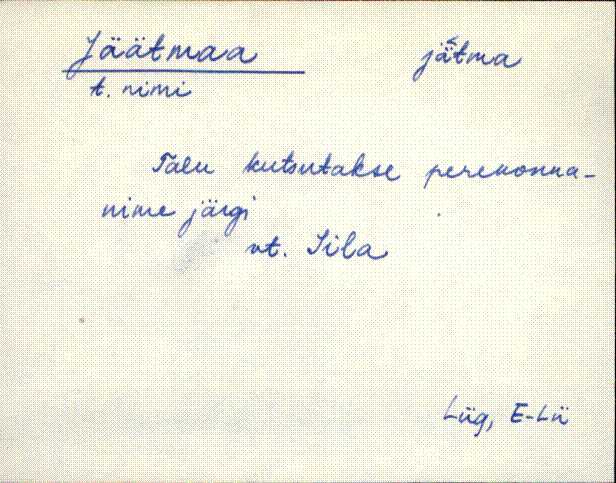 Jäätmaa jä̆tma
t. nimi
Talu kutsutakse perekonna-
nime järgi
vt. Sila
Lüg, E-Lü